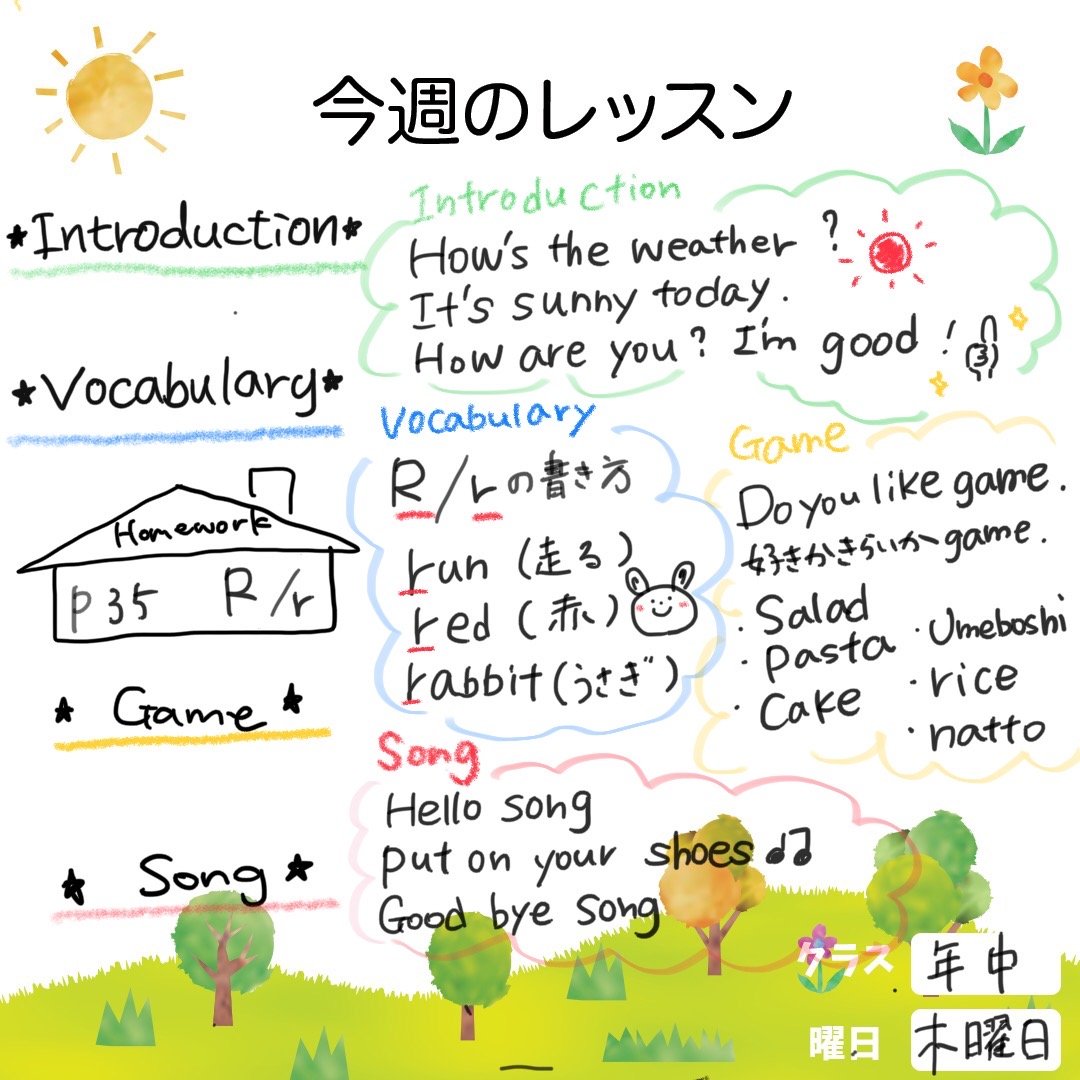 今週のレッスン
*Introduction*
Introduction
How's the weather?
It's sunny today.
How are you? I'm good!
*Vocabulary*
Homework
p35 R/r
Vocabulary
R/rの書き方
run (走る)
red (赤)
rabbit (うさぎ)
* Game *
Game
Do you like game.
好きかきらいか game.
・Salad
・pasta
・Cake
・Umeboshi
・rice
・natto
* Song *
Song
Hello song
put on your shoes♫
Good bye song
クラス 年中
曜日 木曜日